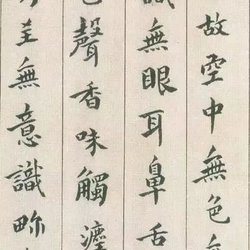 故空中無色無
識無眼耳鼻舌
色聲香味觸
乃至無意識畍